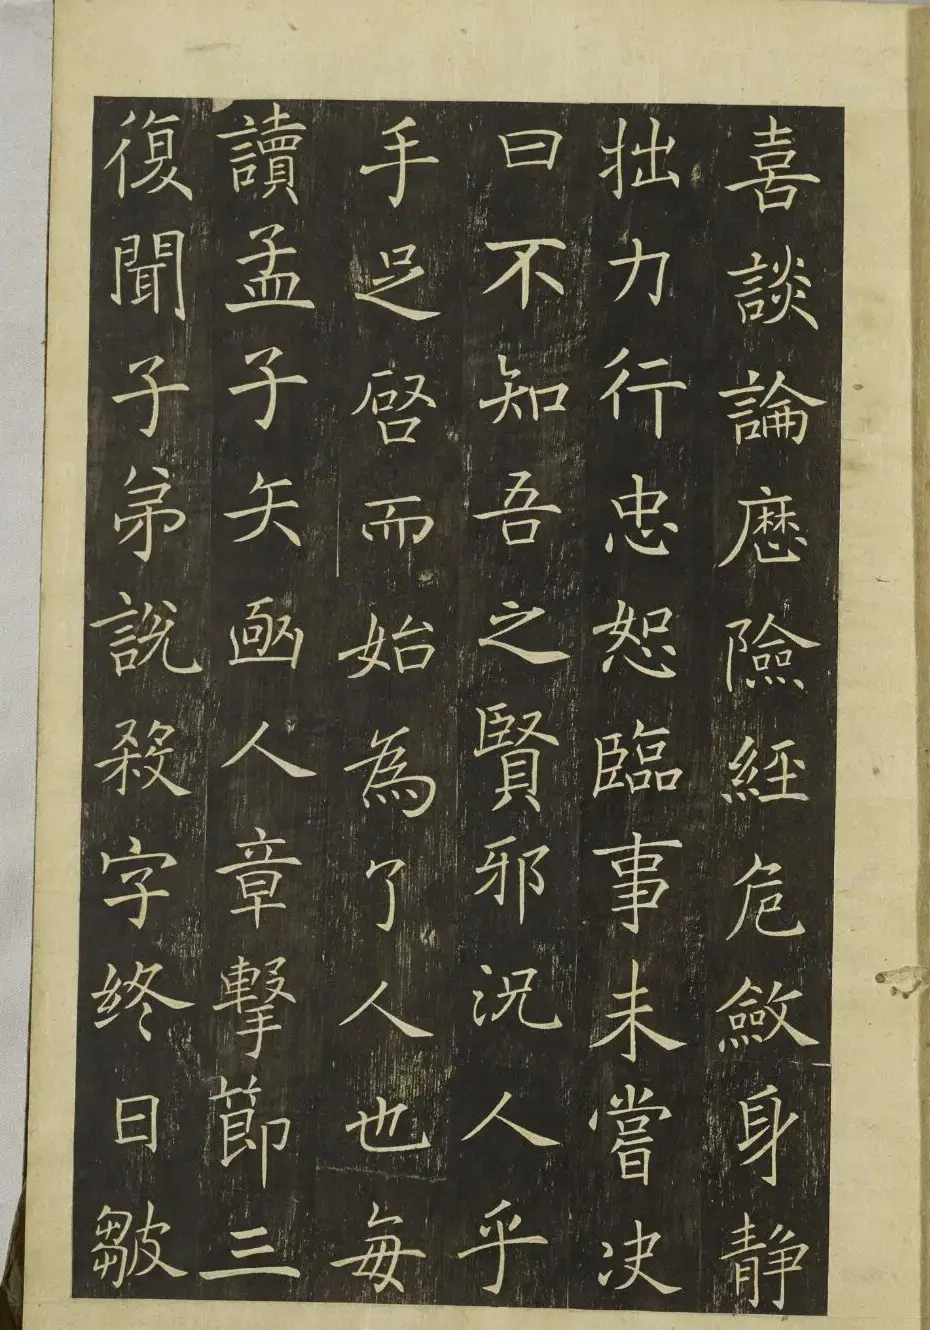 喜談論歷險經危斂身靜
拙力行忠恕臨事未嘗决
曰不知吾之賢邪況人乎
手足啓而始為了人也每
讀孟子矢函人章擊節三
復聞子弟說殺字終日皺